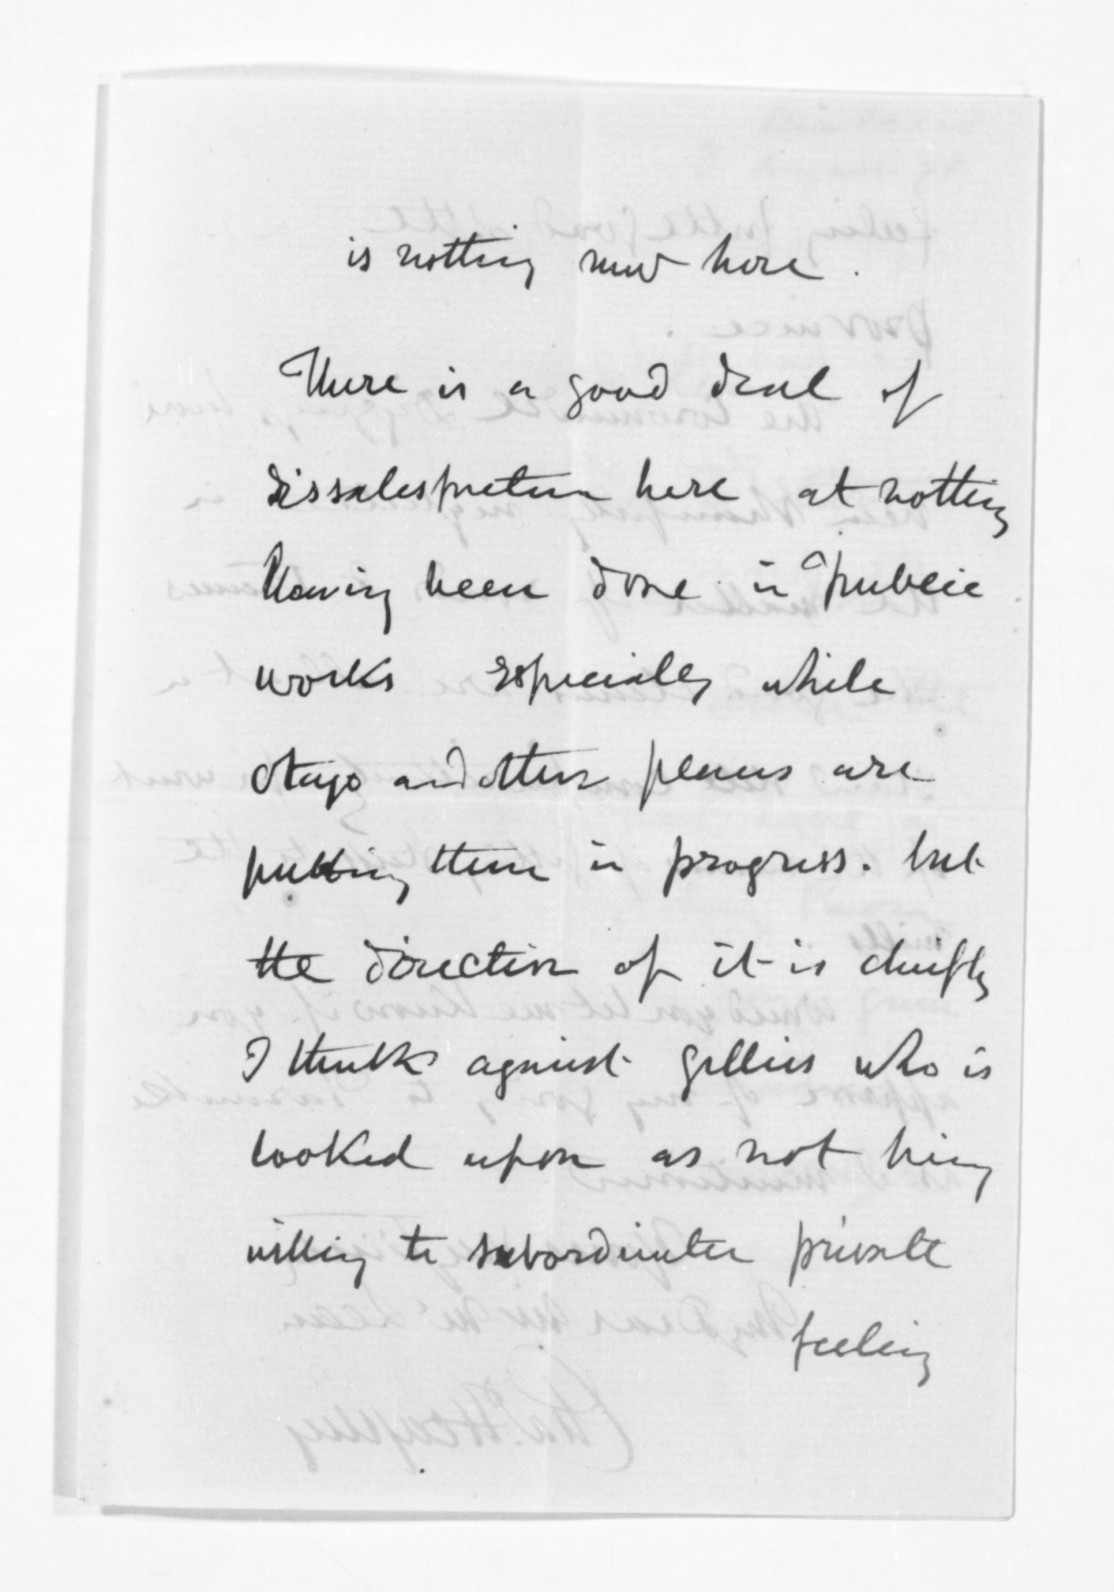 is nothing new here.
There is a good deal of
dissatisfaction here at nothing
Having been done in public
works especially while
Otago and other places are
putting them in progress. but
the direction of it is chiefly
I think against Gillies who is
looked upon as not being
willing to subordinate private
feeling